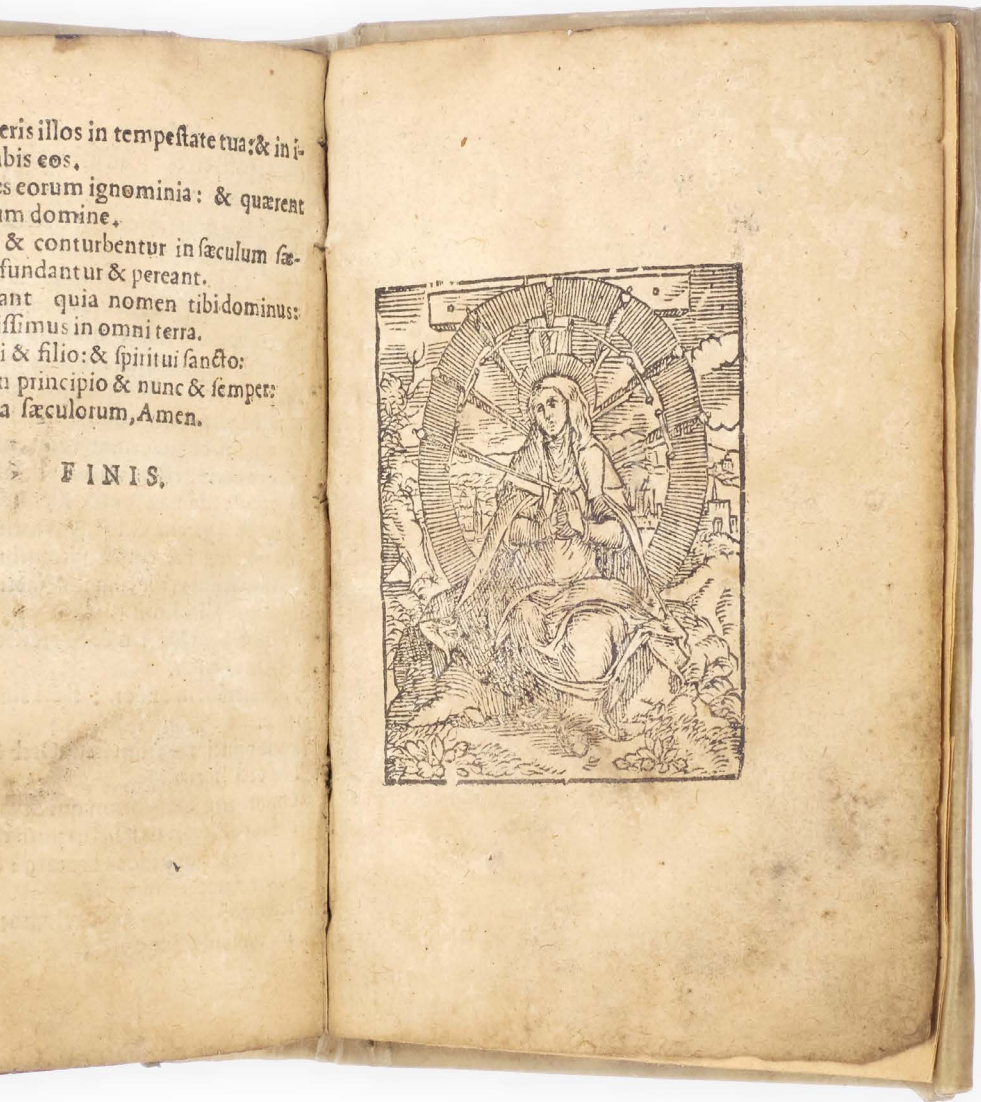 eris illos in tempeſtate tua:& in i-
abis eos.
es eorum ignominia: & quærent
um domine.
& conturbentur in ſæculum ſæ-
fundantur & pereant.
ant quia nomen tibi dominus:
iſſimus in omni terra.
i & filio:& ſpiritui ſancto:
n principio & nunc & ſemper:
a ſæculorum, Amen.
FINIS.